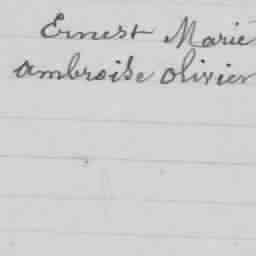 Ernest Marie
ambroise olivier